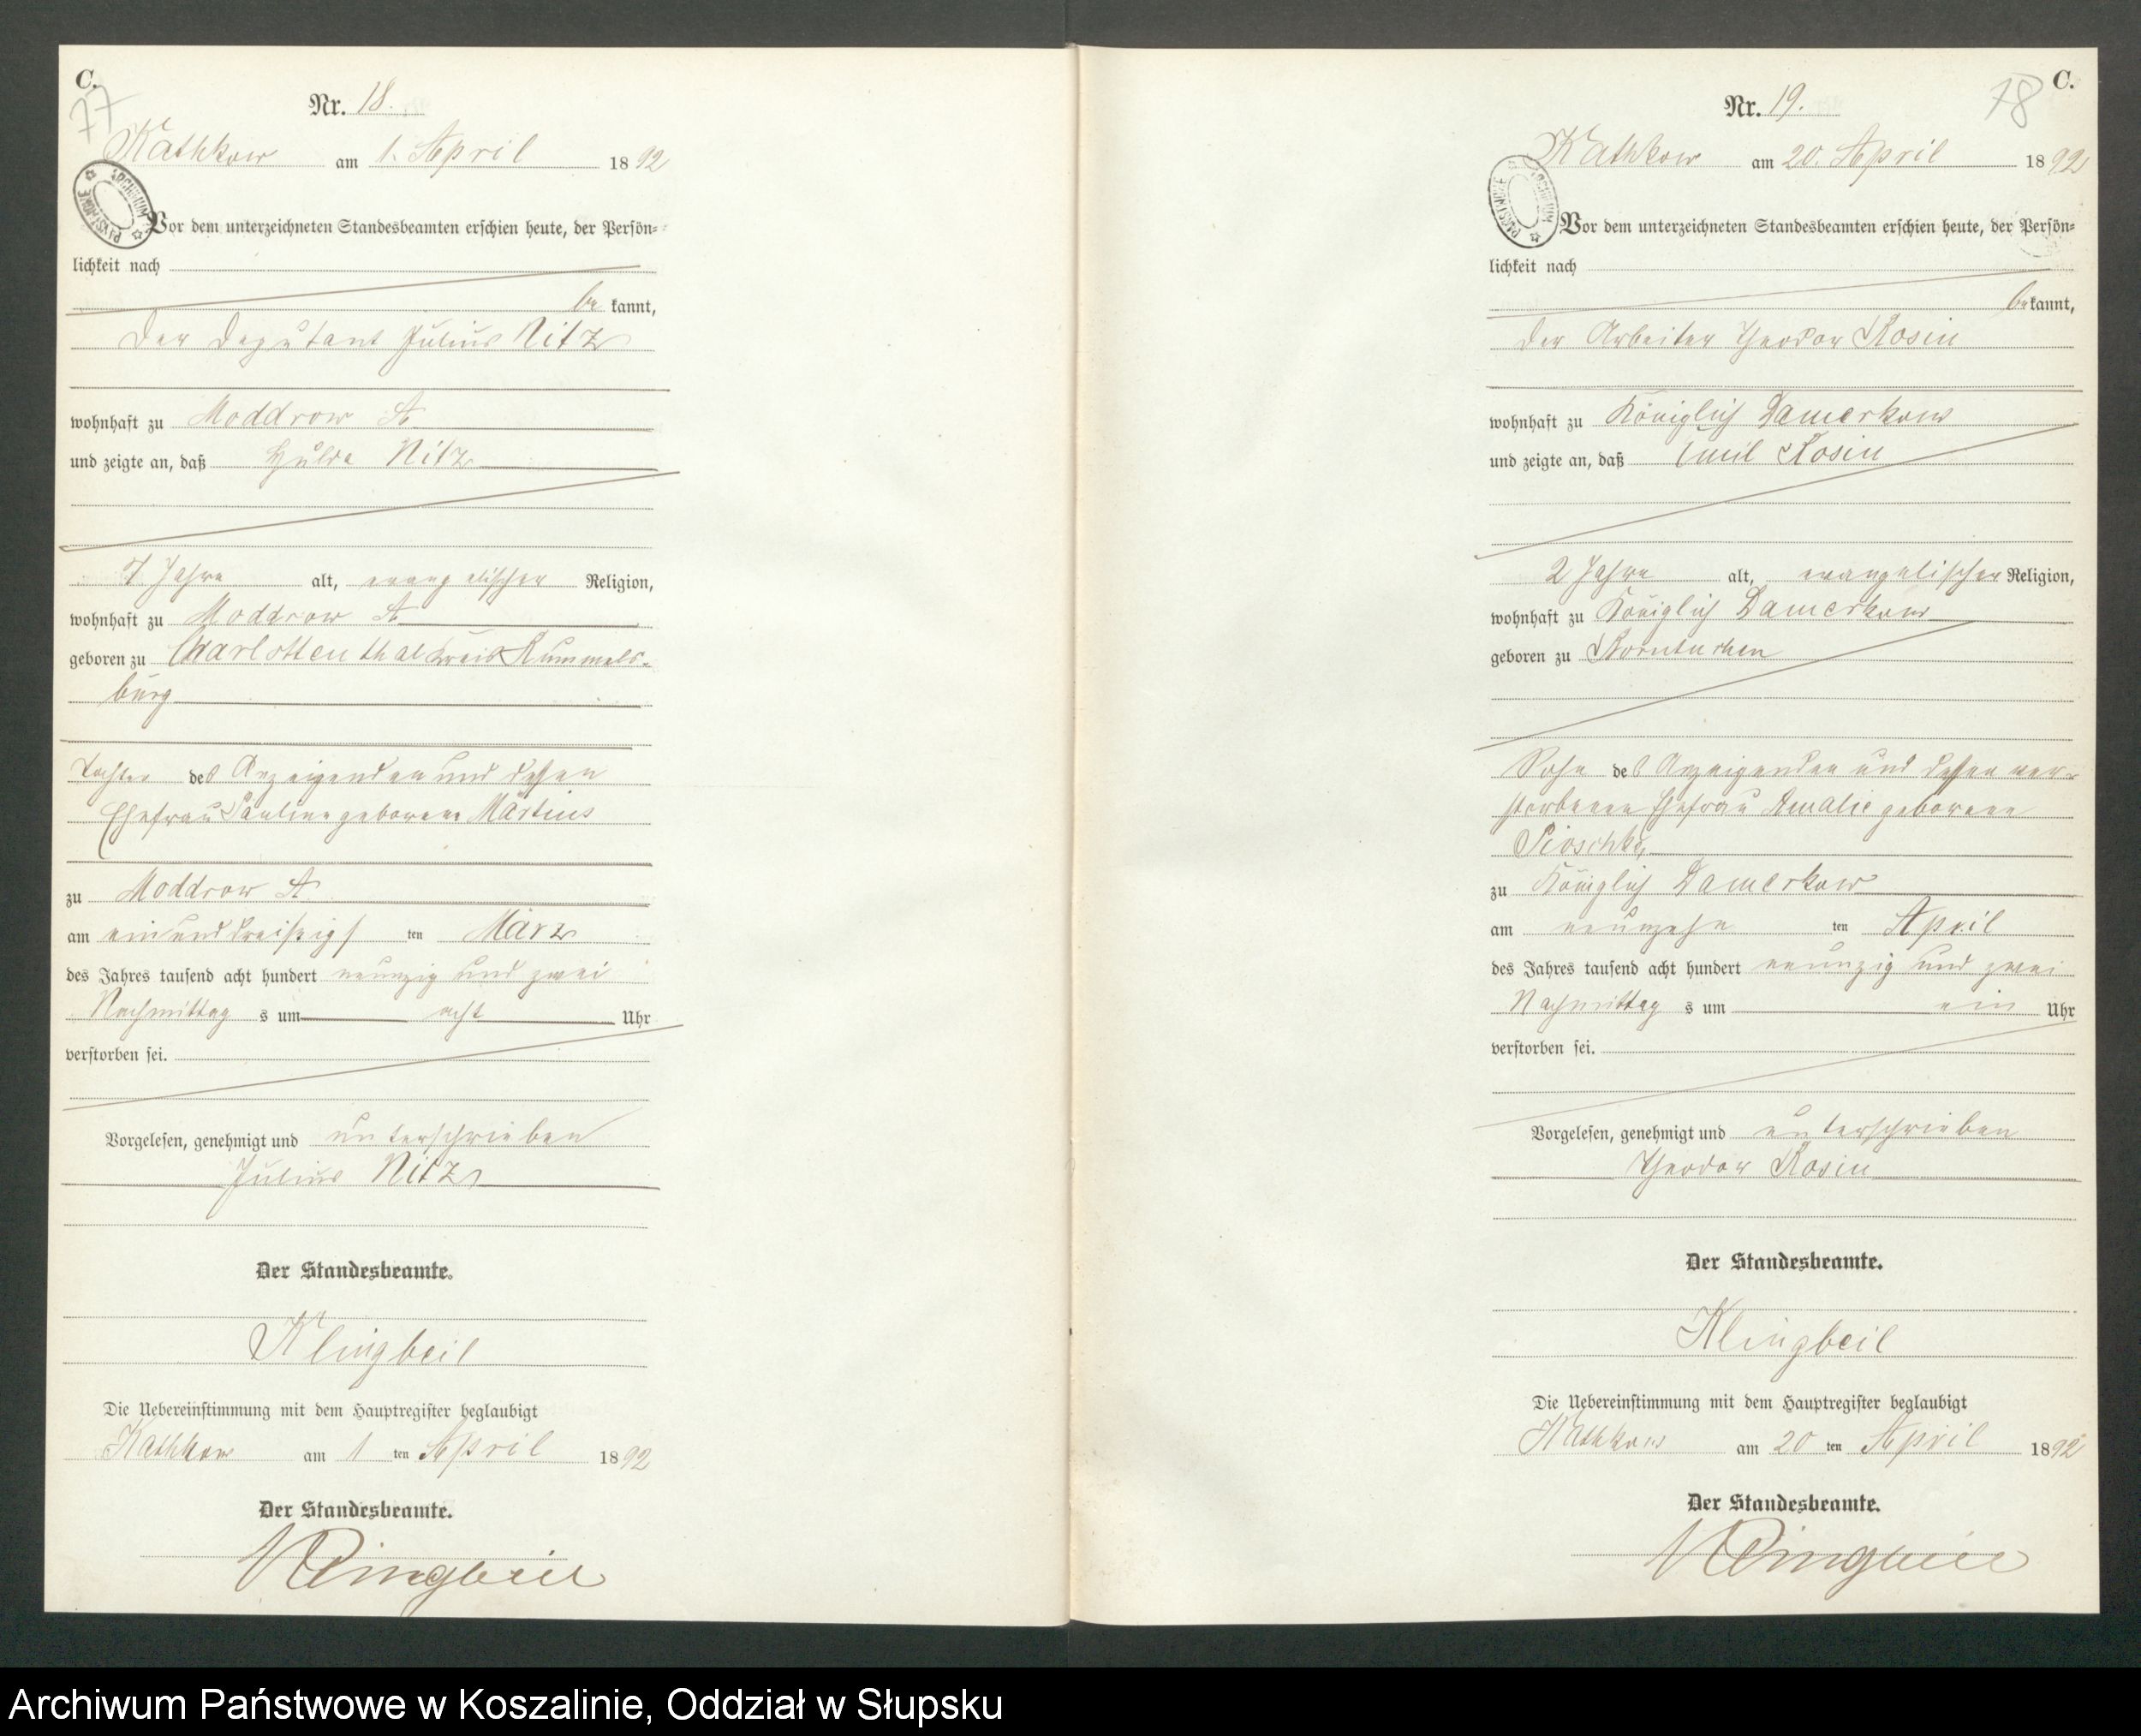 C.
77
Nr. 18.
Kathkow am 1. April 1892
Vor dem unterzeichneten Standesbeamten erschien heute, der Persön-
lichkeit nach
be kannt,
der Deputant Julius Nitz
wohnhaft zu Moddrow A.
und zeigte an, daß Hulda Nitz
7 Jahre alt, evangelischer Religion,
wohnhaft zu Moddrow A.
geboren zu Charlottenthal Kreis Rummels-
burg
Tochter des Anzeigenden und dessen
Ehefrau Pauline geborene Martins
zu Moddrow A.
am einunddreißigs ten März
des Jahres tausend acht hundert neunzig und zwei
Nachmittag s um acht Uhr
verstorben sei.
Vorgelesen, genehmigt und unterschrieben
Julius Nitz
Der Standesbeamte.
Klingbeil
Die Uebereinstimmung mit dem Hauptregister beglaubigt
Kathkow am 1 ten April 1892
Der Standesbeamte.
Klingbeil
C.
78
Nr. 19.
Kathkow am 20. April 1892
Vor dem unterzeichneten Standesbeamten erschien heute, der Persön-
lichkeit nach
bekannt,
der Arbeiter Theodor Rosin
wohnhaft zu Königlich Damerkow
und zeigte an, daß Emil Rosin
2 Jahre alt, evangelischer Religion,
wohnhaft zu Königlich Damerkow
geboren zu Morntuchen
Sohn des Anzeigenden und dessen ver-
storbenen Ehefrau Amalie geborene
Pioschke,
zu Königlich Damerkow
am neunzehn ten April
des Jahres tausend acht hundert neunzig und zwei
Nachmittag s um ein Uhr
verstorben sei.
Vorgelesen, genehmigt und unterschrieben
Theodor Rosin
Der Standesbeamte.
Klingbeil
Die Uebereinstimmung mit dem Hauptregister beglaubigt
Kathkow am 20 ten April 1892
Der Standesbeamte.
Klingbeil
Archiwum Państwowe w Koszalinie, Oddział w Słupsku